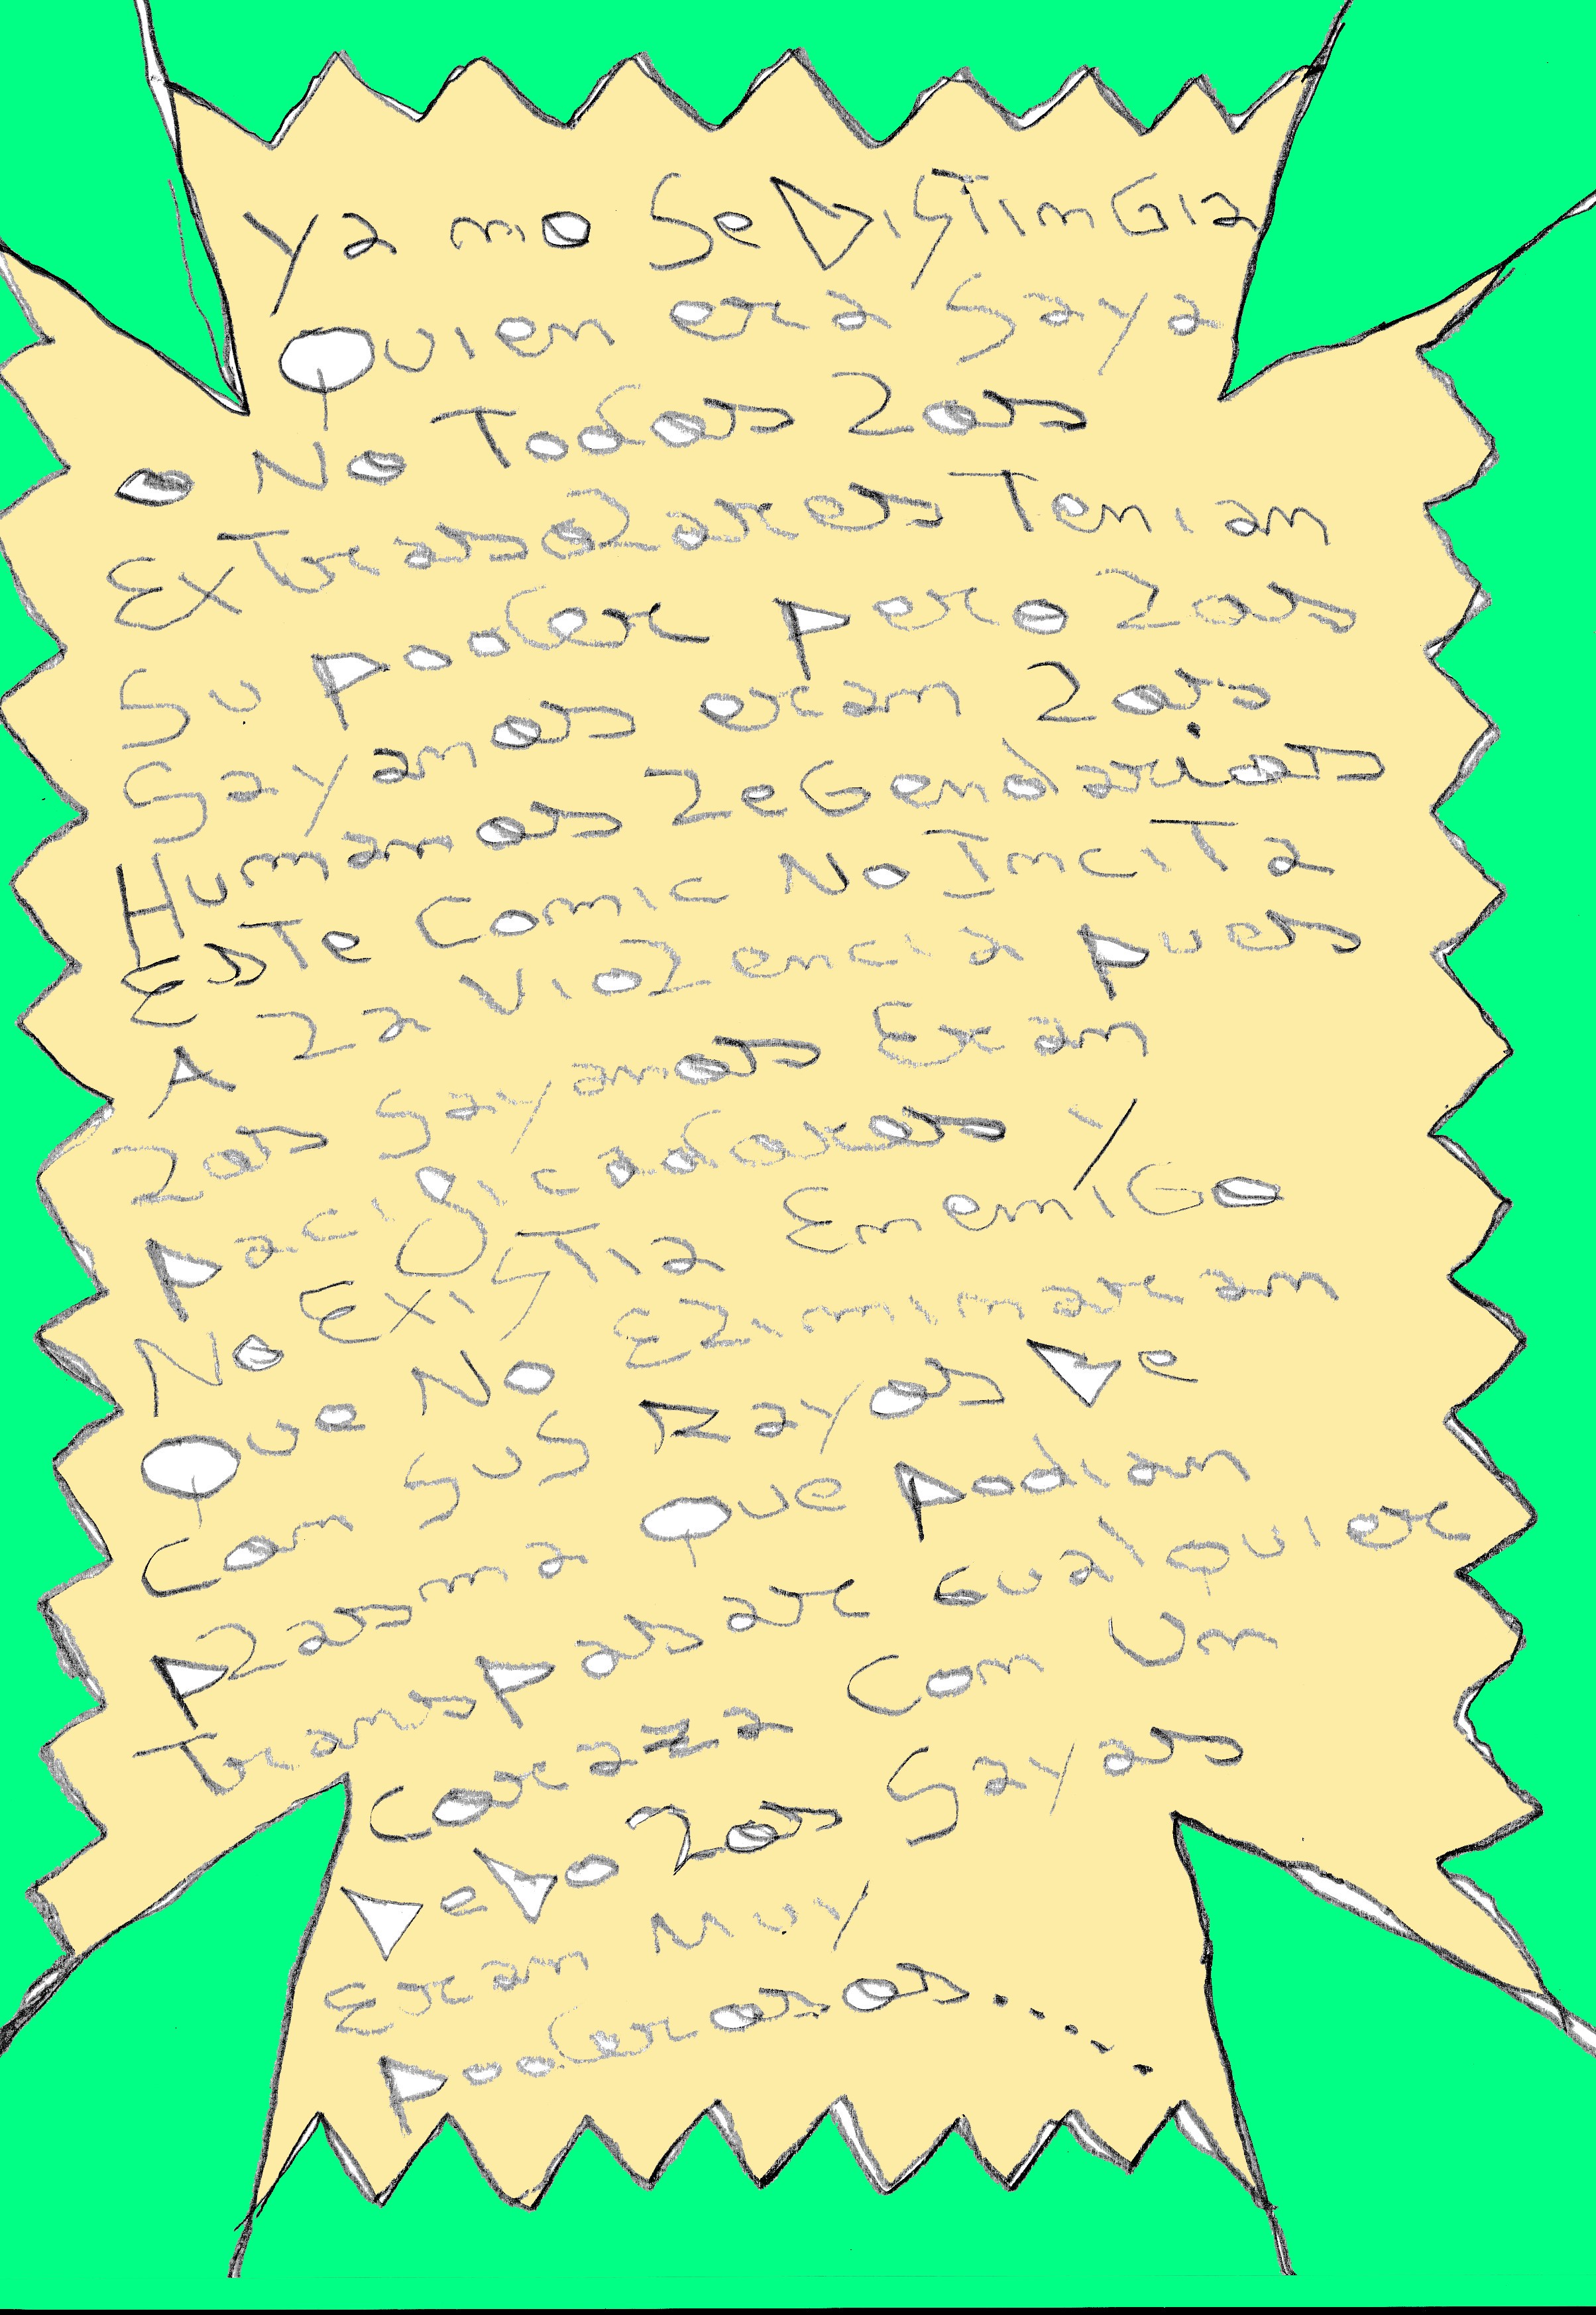 Ya no Se DiSTinGia
Quien era Saya
o No Todos los
ExTrasolares Tenian
Su Poder Pero los
Sayanos eran los
Humanos leGendarios
EsTe Comic No InciTa
A la Violencia Pues
los Sayanos Eran
Pacificadores Y
No ExiSTia EnemiGo
Que No Eliminaran
Con SuS Rayos De
Plasma Que Podian
Transpasar Cualquier
Coraza Con Un
Dedo los Sayas
Eran Muy
Poderosos.....